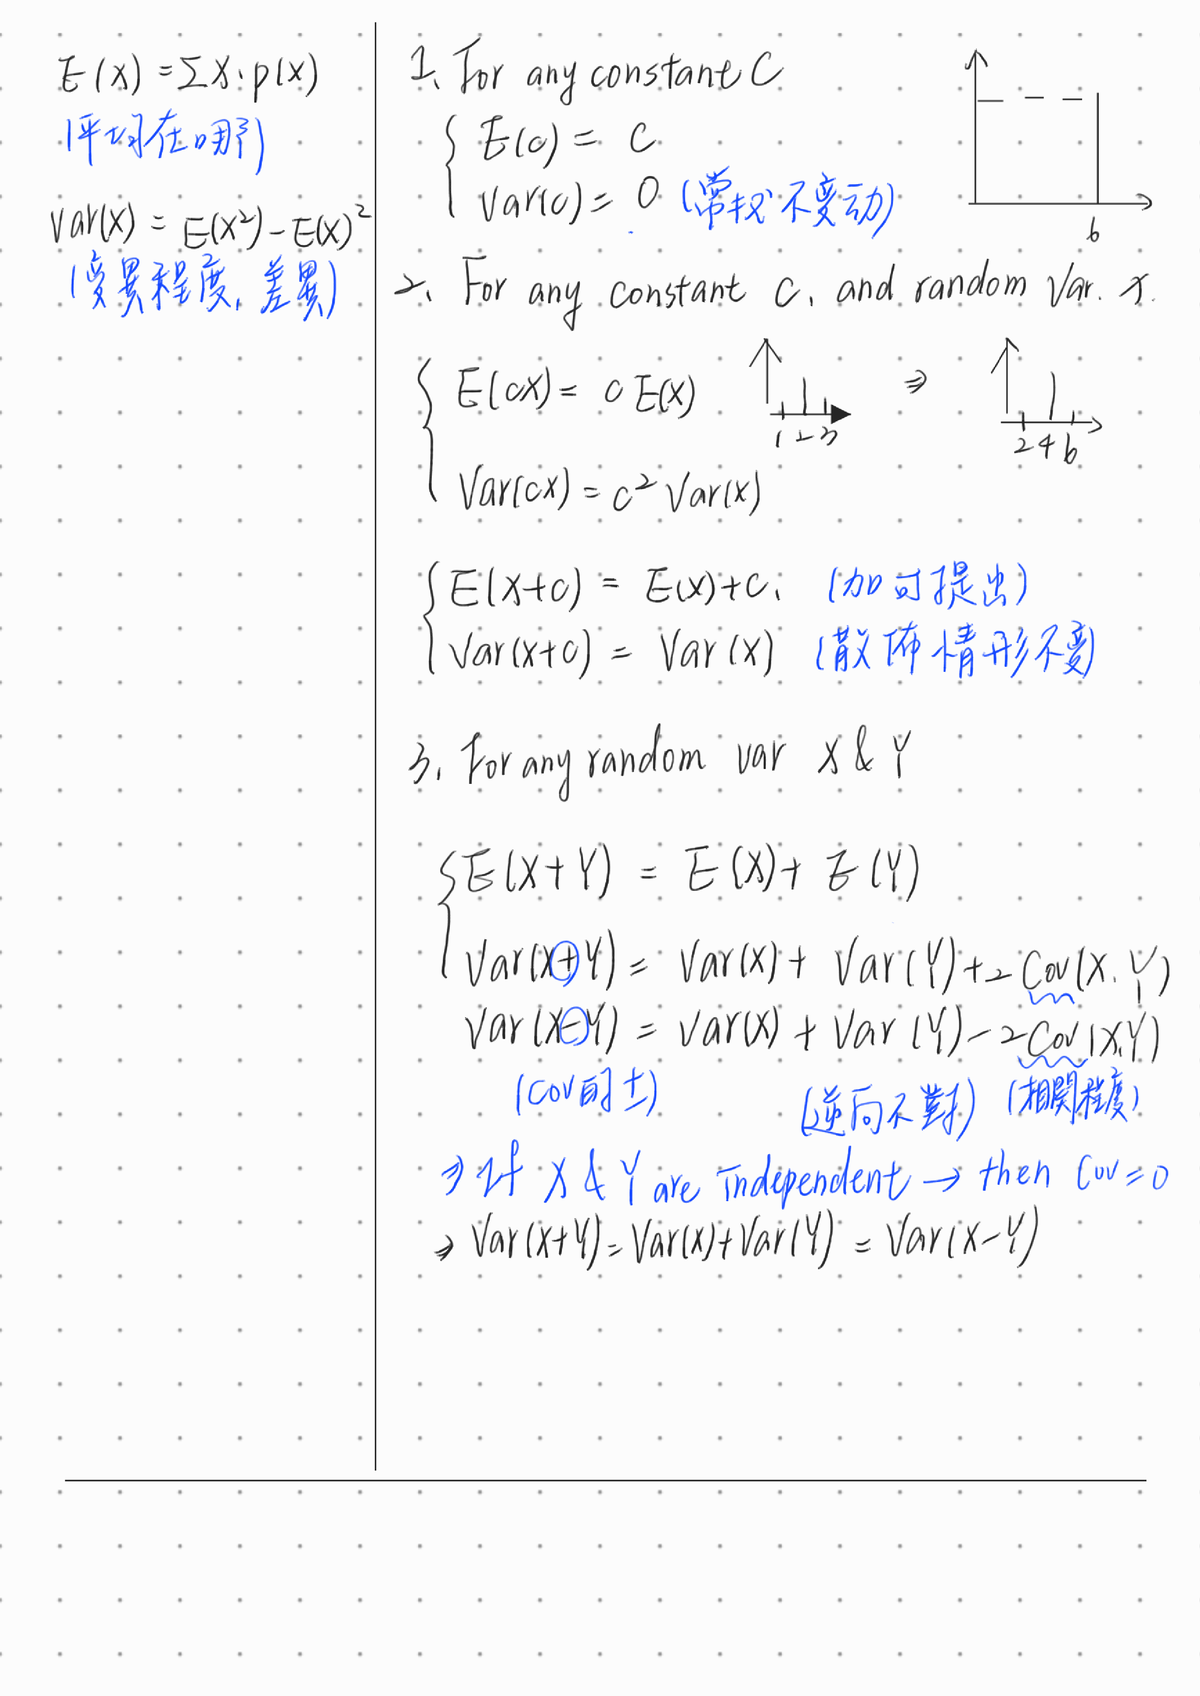 E(X) = ΣX·p(X)
(平均在哪)
Var(X) = E(X²) - E(X)²
(變異程度, 差異)
1. For any constant C
E(c) = C
Var(c) = 0 (常數不變動)
6
2. For any constant c, and random Var. X.
E(cX) = c E(X)
1 2 3
⇒
2 4 6
Var(cX) = c² Var(X)
E(X+c) = E(X)+c, (加可提出)
Var(X+c) = Var(X) (散佈情形不變)
3. For any random var X & Y
E(X+Y) = E(X) + E(Y)
Var(X+Y) = Var(X) + Var(Y) + 2 Cov(X,Y)
Var(X-Y) = Var(X) + Var(Y) - 2Cov(X,Y)
(Cov的±) (逆向不對) (相關程度)
⇒ If X & Y are independent → then Cov = 0
⇒ Var(X+Y) = Var(X)+Var(Y) = Var(X-Y)